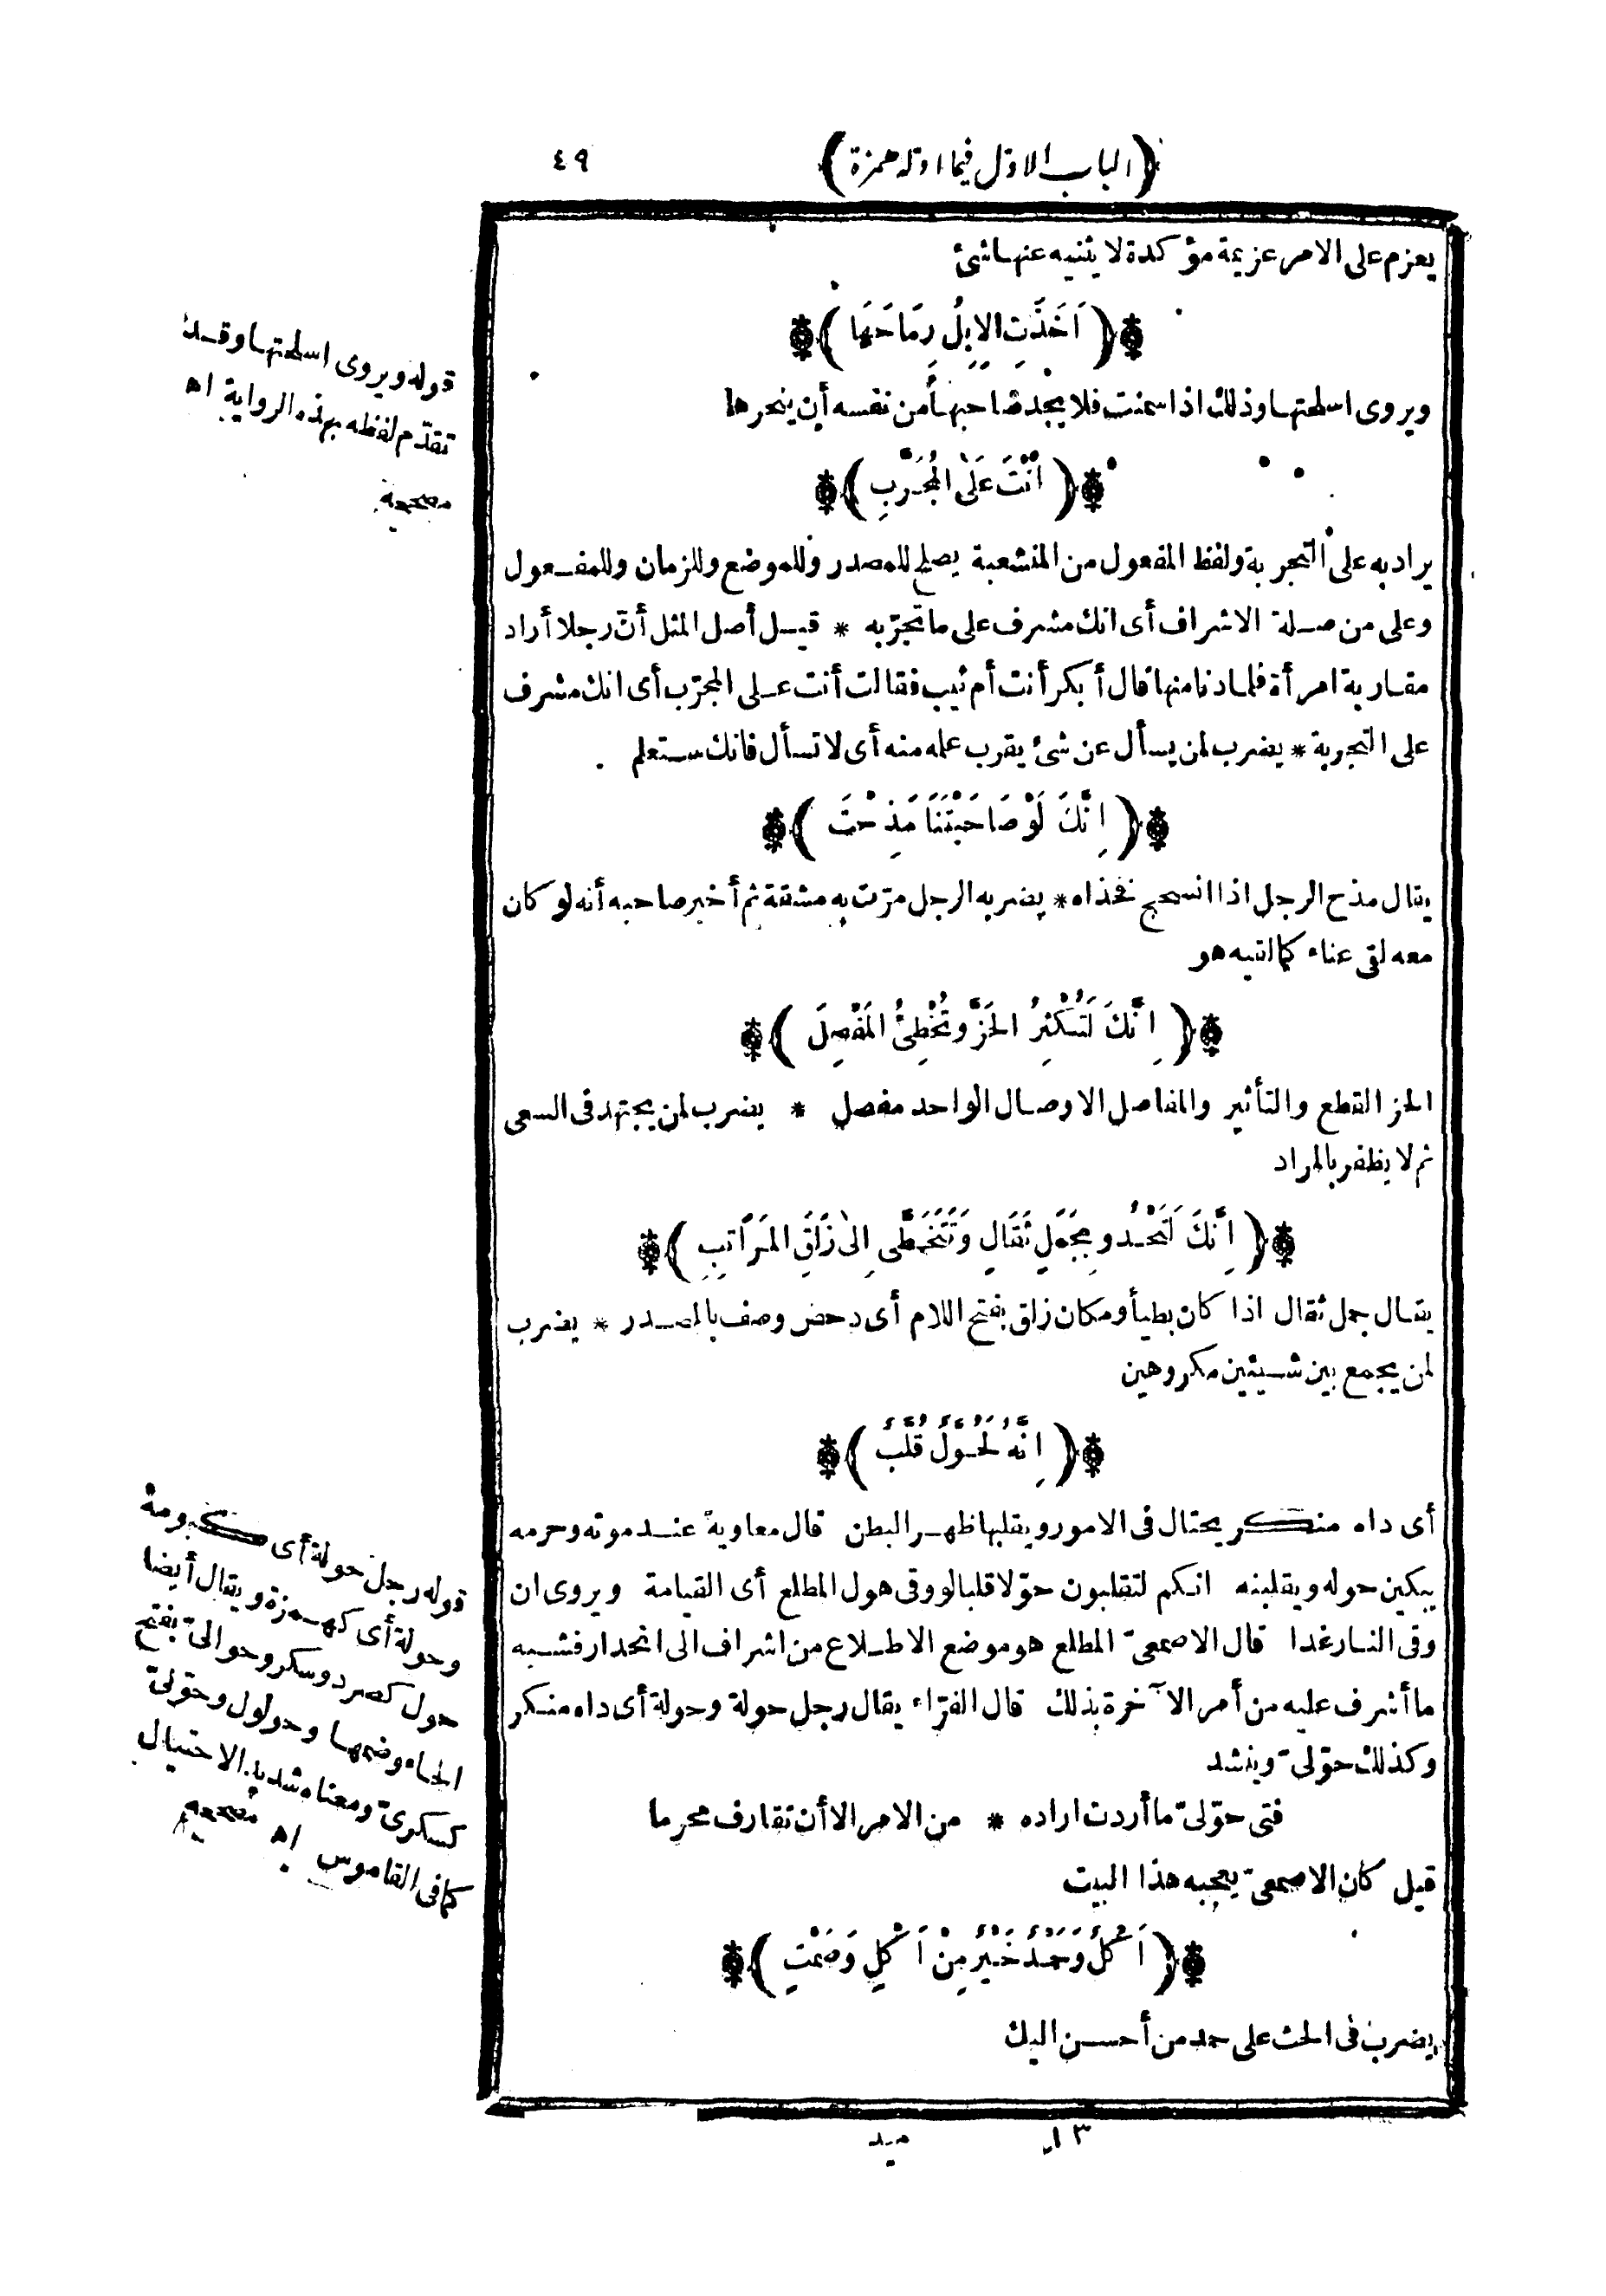 (الباب الاوّل فيما اوّله همزة) ٤٩
يعزم على الامر عزيمة مؤكدة لا يثنيه عنها شئ
(اَخَذَتِ الاِبِلُ رِمَاحَهَا)
ويروى اسلحتها وذلك اذا سمنت فلا يجد صاحبها من نفسه أن ينحرها
(اَنْتَ عَلَى المُجَرَّبِ)
يراد به على التجربة ولفظ المفعول من المنشعبة يصلح للمصدر وللموضع وللزمان وللمفعول
وعلى من صلة الاشراف أى انك مشرف على ما تجرّبه * قيل أصل المثل أنّ رجلا أراد
مقاربة امرأة فلما دنا منها قال أبكر أنت أم ثيب فقالت أنت على المجرّب أى انك مشرف
على التجربة * يضرب لمن يسأل عن شئ يقرب علمه منه أى لا تسأل فانك ستعلم
(اِنَّكَ لَوْ صَاحَبْتَنَا مَذِحْتَ)
يقال مذح الرجل اذا انسحج فخذاه * يضربه الرجل مرّت به مشقة ثم أخبر صاحبه أنه لو كان
معه لقى عناء كما لقيه هو
(اِنَّكَ لَتُكْثِرُ الحَزَّ وَتُخْطِئُ المَفْصِلَ)
الحز القطع والتأثير والمفاصل الاوصال الواحد مفصل * يضرب لمن يجتهد فى السعى
ثم لا يظفر بالمراد
(اِنَّكَ لَتَحْدُو بِجَمَلٍ ثَقَالٍ وَتَتَخَطَّى اِلَى زَلَقِ المَرَاتِبِ)
يقال جمل ثقال اذا كان بطيأ ومكان زلق بفتح اللام أى دحض وصف بالمصدر * يضرب
لمن يجمع بين شيئين مكروهين
(اِنَّهُ لَحُوَّلٌ قُلَّبٌ)
أى داه منكر يحتال فى الامور ويقلبها ظهر البطن قال معاوية عند موته وحرمه
يبكين حوله ويقلبنه انكم لتقلبون حوّلا قلبا لو وقى هول المطلع أى القيامة ويروى ان
وقى النار غدا قال الاصمعىّ المطلع هو موضع الاطلاع من اشراف الى انحدار فشبه
ما أشرف عليه من أمر الآخرة بذلك قال الفرّاء يقال رجل حولة وحولة أى داه منكر
وكذلك حوّلىّ وينشد
فتى حوّلىّ ما أردت اراده * من الامر الا أن تقارف محرما
قيل كان الاصمعىّ يعجبه هذا البيت
(اَكْلٌ وَحَمْدٌ خَيْرٌ مِنْ اَكْلٍ وَصَمْتٍ)
يضرب فى الحث على حمد من أحسن اليك
١٣ ميد
قوله ويروى اسلحتها وقد
تقدّم لفظه بهذه الرواية اه
مصححه
قوله رجل حولة أى كبومة
وحولة أى كهمزة ويقال أيضا
حول كصرد وسكر وحوالىّ بفتح
الحاء وضمها وحولول وحوّلىّ
كسكرىّ ومعناه شديد الاحتيال
كما فى القاموس اه مصححه